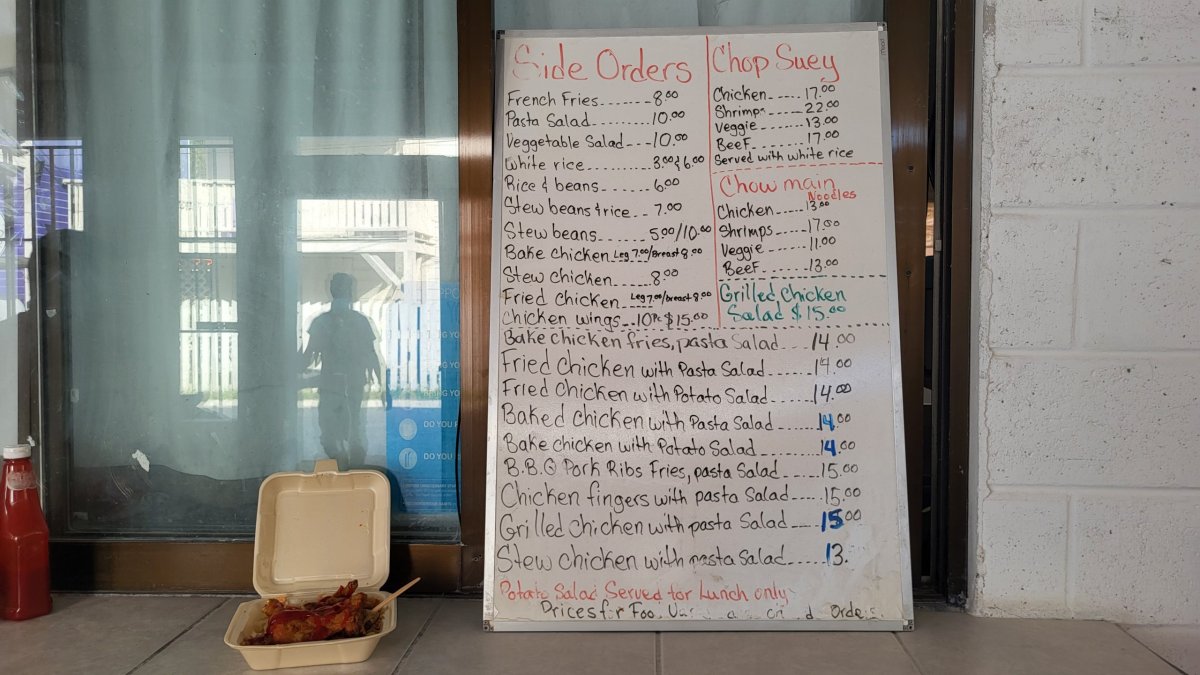 Side Orders
French Fries ------- 8.00
Pasta Salad ......... 10.00
Veggetable Salad --- 10.00
White rice ........ 3.00 & 6.00
Rice & beans ------ 6.00
Stew beans & rice -- 7.00
Stew beans ------ 5.00/10.00
Bake chicken Leg 7.00/Breast 8.00
Stew chicken ---- 8.00
Fried Chicken Leg 7.00/breast 8.00
Chicken wings -- 10Pc $15.00
Chop Suey
Chicken ----- 17.00
Shrimps ----- 22.00
Veggie ------ 13.00
Beef -------- 17.00
Served with white rice
Chow main
Noodles
Chicken ---- 13.00
Shrimps ----- 17.00
Veggie ------ 11.00
Beef ------- 13.00
Grilled Chicken
Salad $15.00
Bake chicken fries, pasta Salad ---- 14.00
Fried Chicken with Pasta Salad ------- 14.00
Fried Chicken with Potato Salad ------ 14.00
Baked chicken with Pasta Salad ----- 14.00
Bake chicken with Potato Salad ------ 14.00
B.B.Q Pork Ribs Fries, pasta Salad ---- 15.00
Chicken fingers with pasta Salad ---- 15.00
Grilled Chicken with pasta Salad ---- 15.00
Stew chicken with pasta Salad ---- 13.
Potato Salad Served for Lunch only
Prices for Orders
DO YOU
DO YOU